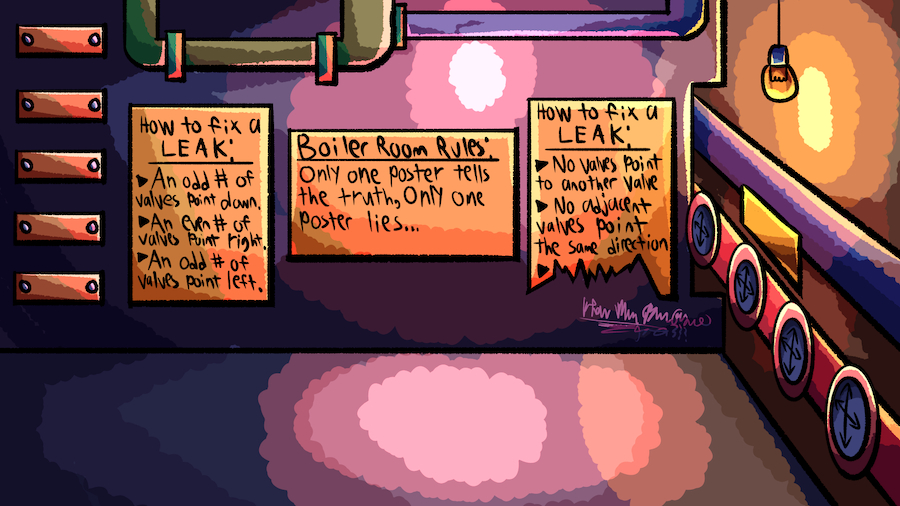 How to fix a
LEAK:
▶ An odd # of
valves point down.
▶ An even # of
valves point right.
▶ An odd # of
valves point left.
Boiler Room Rules:
Only one poster tells
the truth, Only one
poster lies...
How to fix a
LEAK:
▶ No valves point
to another valve
▶ No adjacent
valves point
the same direction
▶